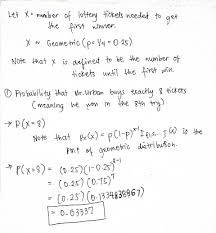 Let X = number of lottery tickets needed to get
the first winner.
X ~ Geometric (p = 1/4 = 0.25)
Note that X is defined to be the number of
tickets until the first win.
① Probability that Mr. Urban buys exactly 8 tickets
(meaning he won in the 8th try)
→ P(X=8)
Note that Px(x) = p(1-p)^x-1 I (x) is the
PMF of geometric distribution.
→ P(X=8) = (0.25)(1-0.25)^8-1
= (0.25)(0.75)^7
= (0.25)(0.1334838867)
= 0.03337